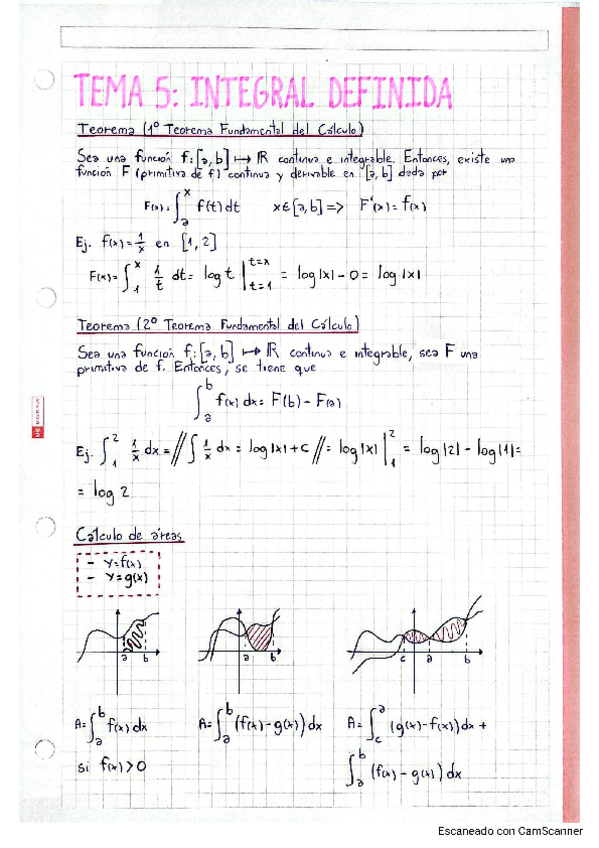 TEMA 5: INTEGRAL DEFINIDA
Teorema (1º Teorema Fundamental del Cálculo)
Sea una función f:[a,b] ↦ ℝ continua e integrable. Entonces, existe una
función F (primitiva de f) continua y derivable en [a,b] dada por
F(x) = ∫ₐˣ f(t) dt x∈[a,b] => F'(x) = f(x)
Ej. f(x) = 1/x en [1,2]
F(x) = ∫₁ˣ 1/t dt = log t |ₜ₌₁ᵗ⁼ˣ = log|x| - 0 = log|x|
Teorema (2º Teorema Fundamental del Cálculo)
Sea una función f:[a,b] ↦ ℝ continua e integrable, sea F una
primitiva de f. Entonces, se tiene que
∫ₐᵇ f(x) dx = F(b) - F(a)
Ej. ∫₁² 1/x dx = // ∫ 1/x dx = log|x| + C // = log|x| |₁² = log|2| - log|1| =
= log 2
Cálculo de áreas
- y=f(x)
- y=g(x)
a b
a b
c a b
A = ∫ₐᵇ f(x) dx
si f(x) > 0
A = ∫ₐᵇ (f(x) - g(x)) dx
A = ∫꜀ᵃ (g(x) - f(x)) dx +
∫ₐᵇ (f(x) - g(x)) dx
Escaneado con CamScanner